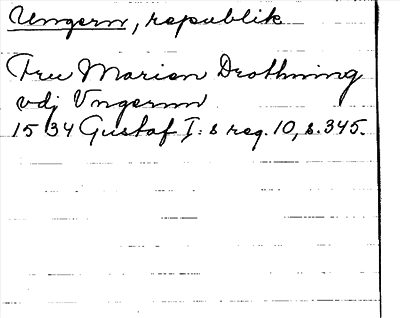 Ungern, republik
Fru Marien Drothning
vdj Vngernn
1534 Gustaf I:s reg. 10, s. 345.